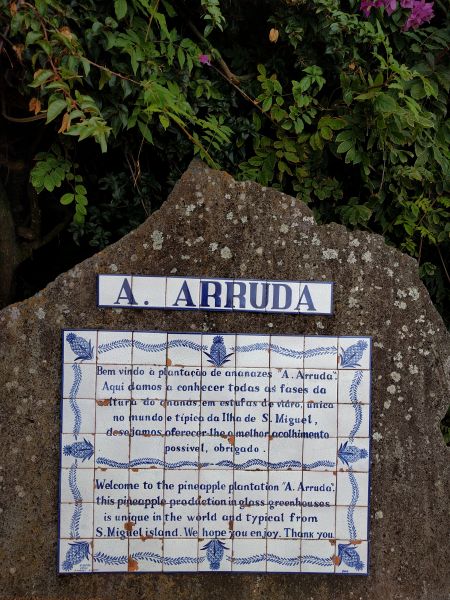 A. ARRUDA
Bem vindo à plantação de ananazes "A. Arruda".
Aqui damos a conhecer todas as fases da
cultura do ananás em estufas de vidro, única
no mundo e típica da Ilha de S. Miguel,
desejamos oferecer-lhe o melhor acolhimento
possivel, obrigado.
Welcome to the pineapple plantation "A. Arruda".
this pineapple production in glass greenhouses
is unique in the world and typical from
S. Miguel island. We hope you enjoy. Thank you.